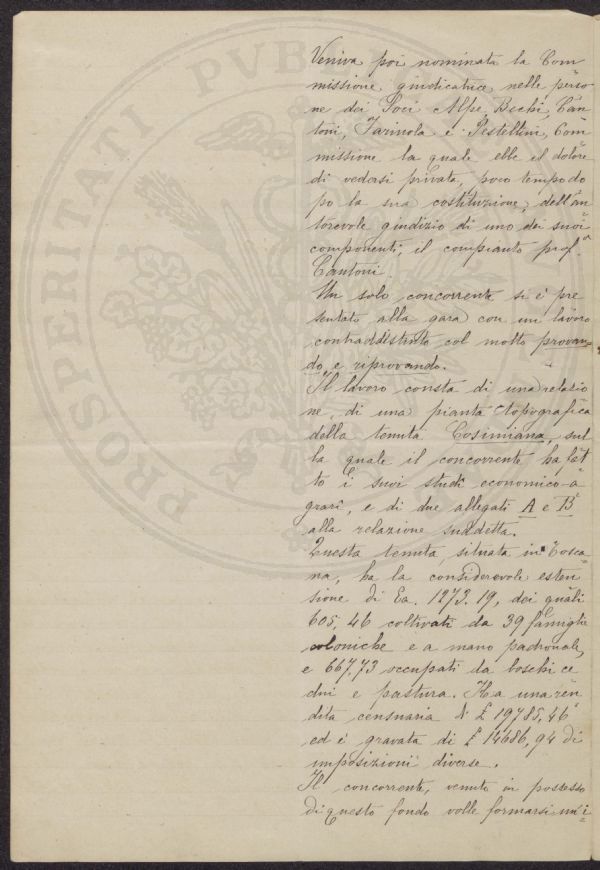 Veniva poi nominata la Com
missione giudicatrice nelle perso
ne dei Soci Alpe, Bechi, Can
toni, Farinola e Pestellini, Com
missione la quale ebbe il dolore
di vedersi privata, poco tempo do
po la sua costituzione, dell'au
torevole giudizio di uno dei suoi
componenti, il compianto prof.
Cantoni.
Un solo concorrente si è pre
sentato alla gara con un lavoro
contraddistinto col motto provan-
do e riprovando.
Il lavoro consta di una relazio
ne, di una pianta topografica
della tenuta Cosimiana, sul
la quale il concorrente ha fat
to i suoi studi economico-a
grari, e di due allegati A e B
alla relazione suddetta.
Questa tenuta, situata in Tosca
na, ha la considerevole esten
sione di Ea. 1273.19, dei quali
605,46 coltivati da 39 famiglie
coloniche e a mano padronale,
e 667,73 occupati da boschi ce
dui e pastura. Ha una ren
dita censuaria di £ 19785,46
ed è gravata di £ 14686,94 di
imposizioni diverse.
Il concorrente, venuto in possesso
di questo fondo volle formarsi un'i
PROSPERITATI PUBLICAE